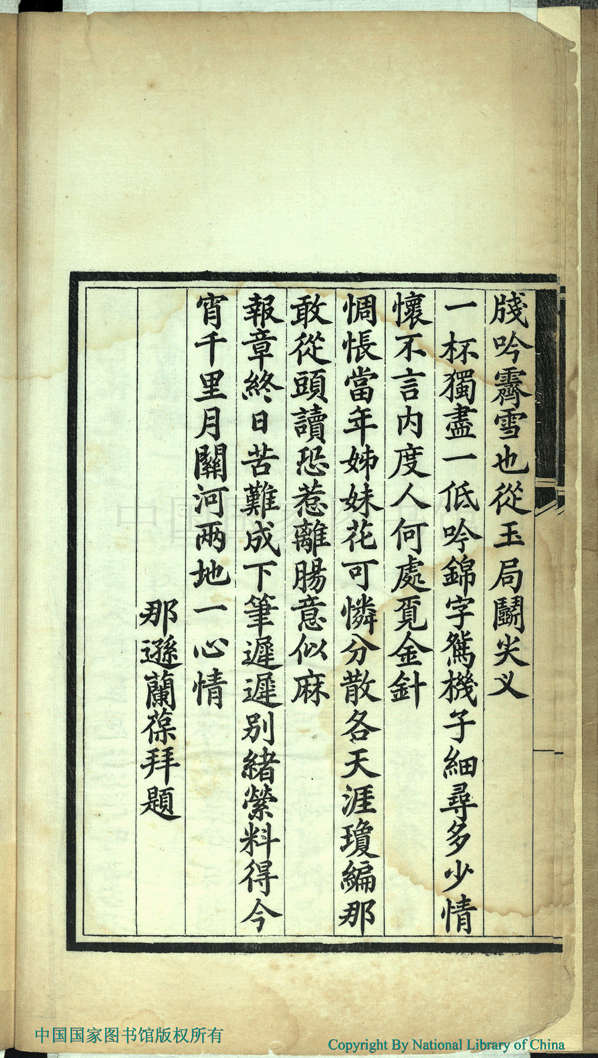 牋吟霽雪也從玉局鬭尖义
一杯獨盡一低吟錦字鴛機子細尋多少情
懷不言内度人何處覓金針
惆悵當年姊妹花可憐分散各天涯瓊編那
敢從頭讀恐惹離腸意似麻
報章終日苦難成下筆遲遲別緒縈料得今
宵千里月關河兩地一心情
那遜蘭葆拜題
中国国家图书馆版权所有
Copyright By National Library of China